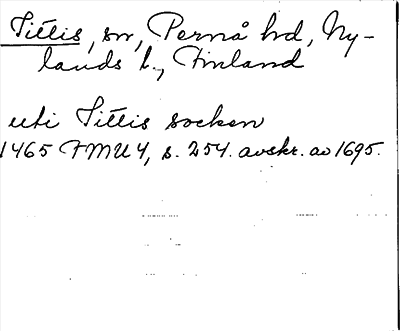 Tittis, sn, Pernå hd, Ny-
lands l., Finland
uti Tittis socken
1465 FMU 4, s. 254. avskr. av 1695.